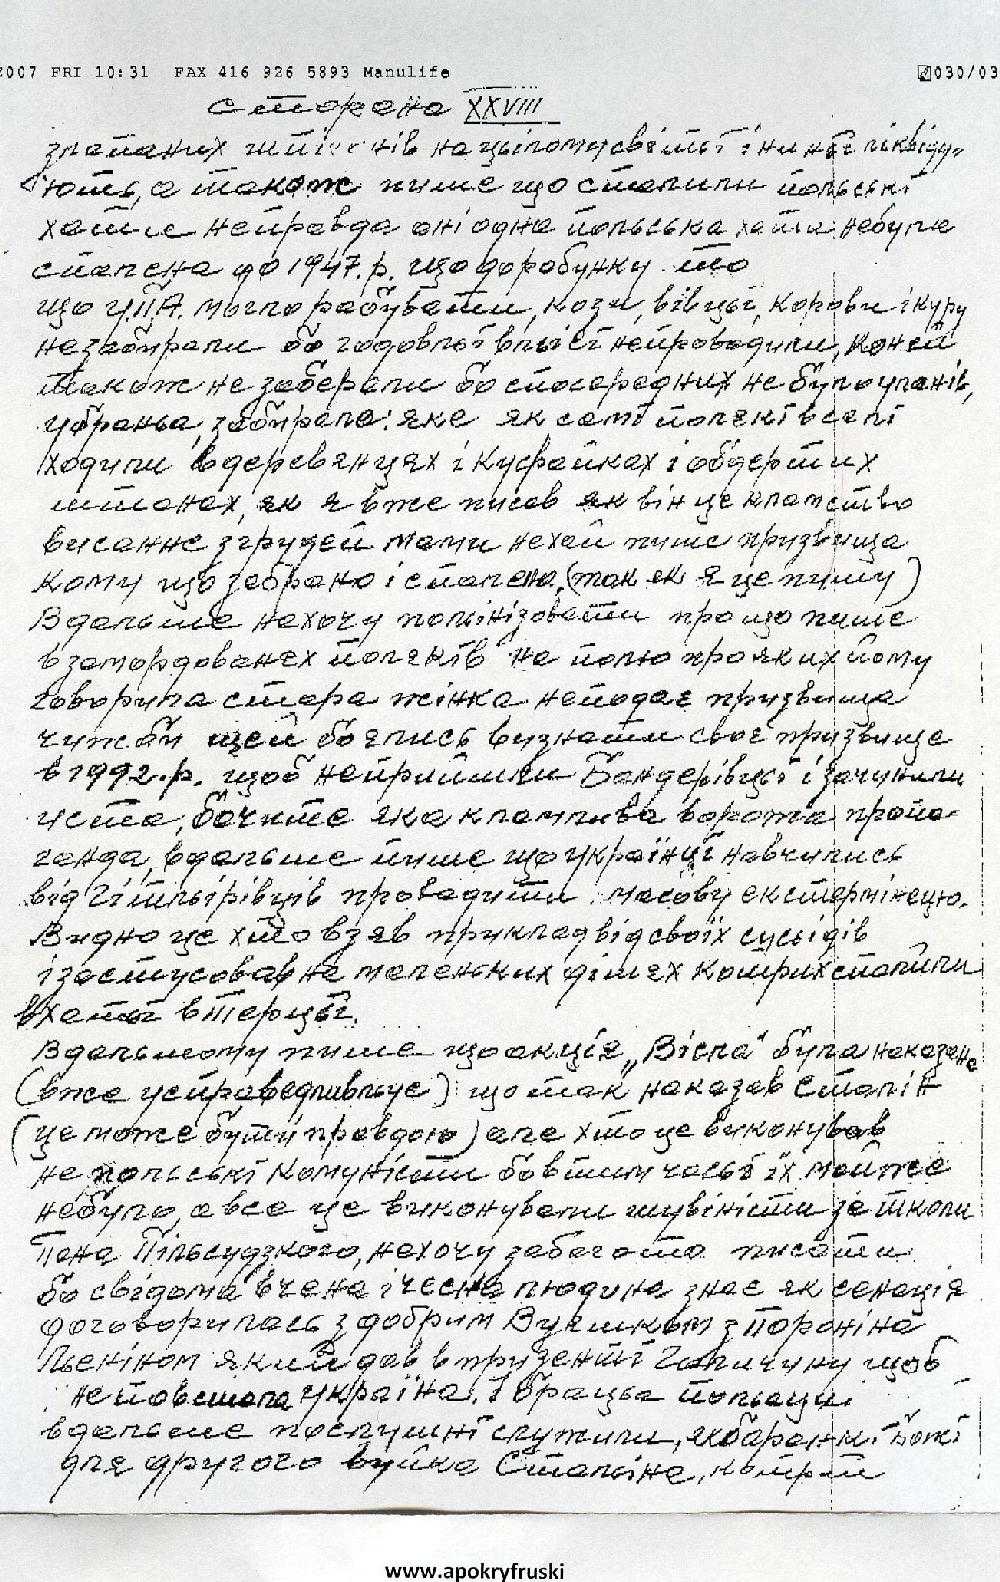 2007 FRI 10:31 FAX 416 926 5893 Manulife 030/03
сторона XXVIII
злапаних шпіонів на цьілому світьі і нині ліквіду-
ють, а також пише що спалили польські
хати неправда ані одна польська хата небула
спалена до 1947.р. що до рабунку то
що УПА. могло рабувати, кози, вівці, корови і куру
незабирали бо годовлі в лісі непроводили, Коней
также не заберали бо спосеред них не було уланів,
убраньа, забирала: яке як самі полєкі в селі
ходили в деревянцях і куфайках і обдертих
штанах, як я вже писав як він це кламство
висанне з грудей мами нехай пише призвища
кому що забрано і спалено, (так як я це пишу)
Вдальше нехочу полєнізовати про що пише
в замордованех полєків на полю про яких йому
говорила стара жінка неподає призвища
чужби щей боялись визнати своє призвище
в 1992.р. щоб неприйшли Бандерівці і зачинили
уста, бачите яка кламлива ворожа пропа-
ганда, вдальше пише що українці навчились
від Гітлєрівців проводити масову екстермінецію.
Видно це хто взяв приклад від своїх сусідів
і застусовав на маленьких дітях котрих спалили
в хаті в Терці.
Вдальшому пише що акція „Вісла" була наказана
(вже усправедливльує) що так наказав Сталін
(це може бути правдою) але хто це виконував
не польські комуністи бо в тим часьі їх майже
небуло, а все це виконували шувіністи зе школи
Пана Пілсудзкого, нехочу забагато писати
бо свідома вчена і чесна людина знає як сенація
договорилась з добрим Вуячиком з Пороніна
Льеніном який дав в прузенті Галичину щоб
неповстала Україна. І браца польаци
вдальше послушні служили, як баранкі Божі
для другого вуйка Стальіна, котрий
www.apokryfruski